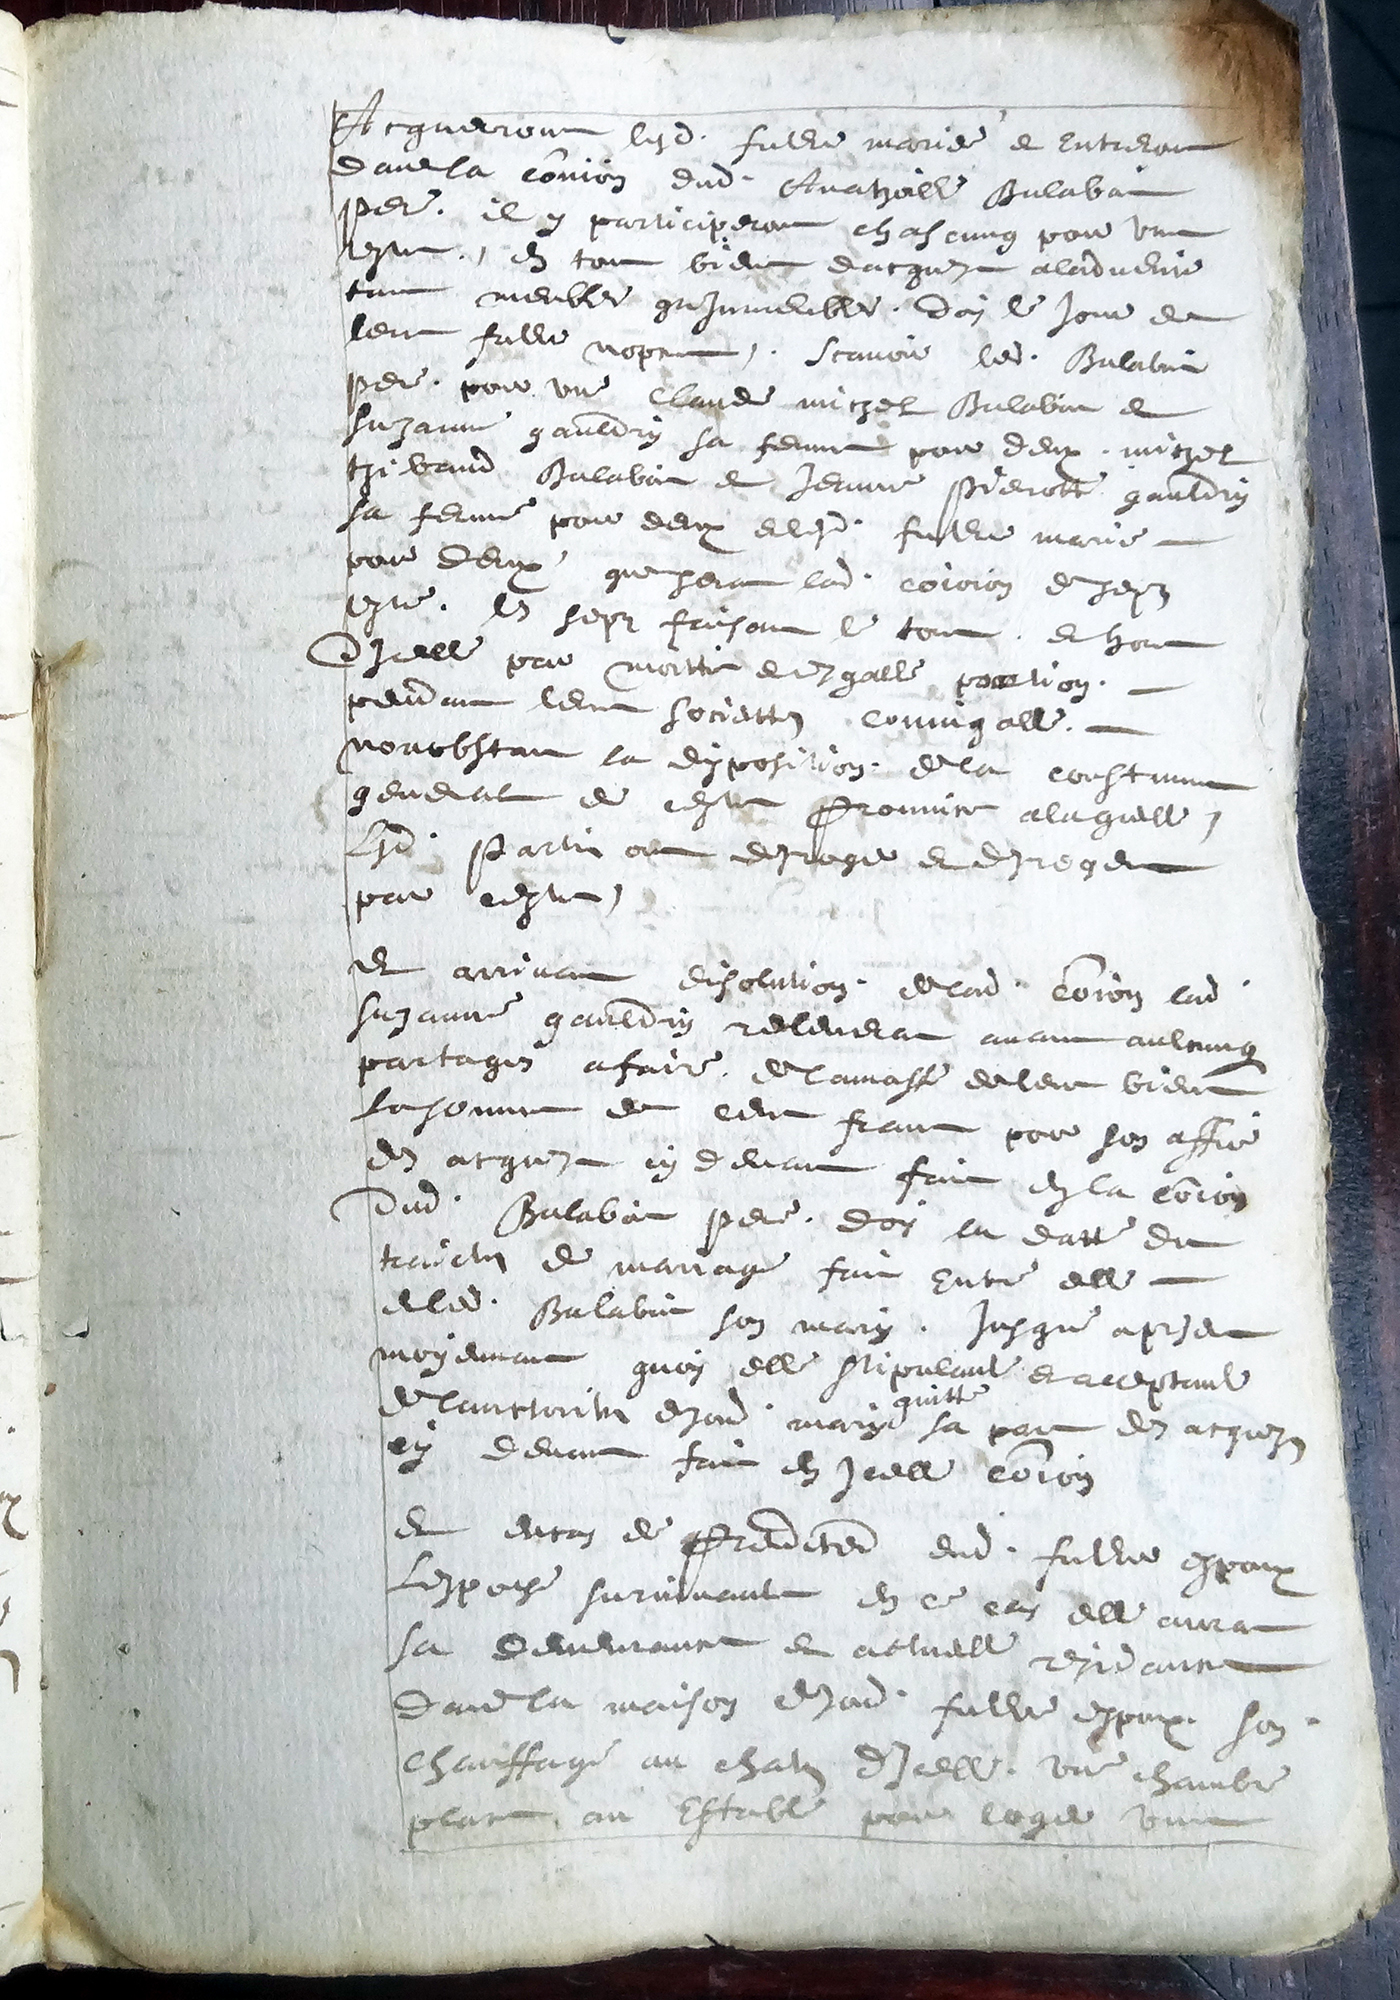 Acqueront lesd. futurs mariés et entreront
dans la cōuiōn dud. Anathoille Balabain
pere. il y participeront chascung pour une
teste, en tout biens dacquest aladvenir
tant meuble qu'Inmeuble. Doiz le Jour de
leurs future nopces, scauoir led. Balabin
pere. pour une Claude michel Balabin et
suzanne gauldry sa femme pour deux. michel
thibaud Balabin et Jeanne pierotte gauldry
sa femme pour deux et lesd. future mariés
pour deux que seront lad. coioion de sept
teste. les sept faisant le tout. et hors
d'Icelle par moittié et esgalle portion.
pendant leurs societtez coniugalle.
nonobstant la disposition de la coustume
generale de ceste Prouince a laquelle
Lesd. Partie ont desroger et desrogent
par cestes
et arriuant disolution de lad. cōiōn lad.
suzanne gauldry releuerat auant aulcung
partages a faire. de la masse de leurs biens
la somme de cent franc pour son assise
des acquest cy deuant fait en la cōiōn
Dud. Balabin pere. doiz la datte du
traicté de mariage fait Entre elle
et led. Balabin son mary. Jusque a present
moyennant quoy elle stipulante et acceptante
de lauctorité de sond. mary quitte sa part des acquest
cy deuant fait en Icelle cōiōn
et en cas de Predeced dud. futur espoux
Lespouse suruiuante en ce cas elle aurat
sa demeurance et actuelle residance
dans la maison de sond. futur espoux. son
chauffage au chaty d'Icelle. une chambre
place au Estable pour loger une